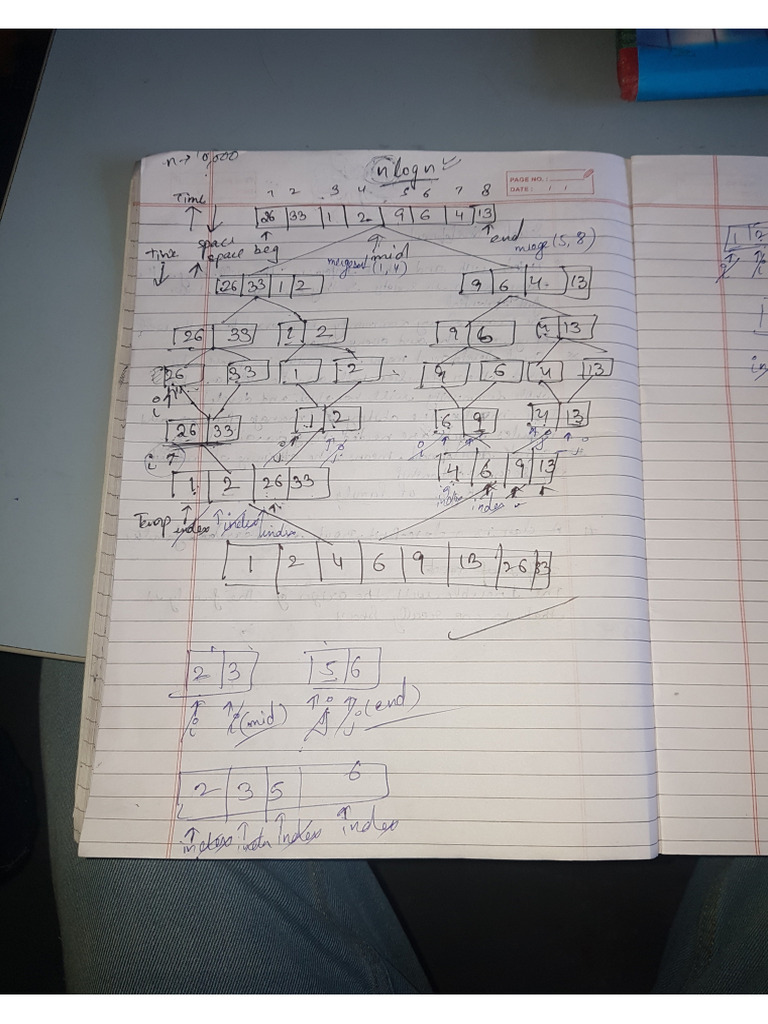 n → 10,000
n log n
PAGE NO.:
DATE: / /
Time 1 2 3 4 5 6 7 8
26 33 1 2 9 6 4 13
space beg mid end
Time space mergesort (1, 4) merge (5, 8)
26 33 1 2 9 6 4 13
26 33 1 2 9 6 4 13
26 33 1 2 9 6 4 13
i
26 33 1 2 6 9 4 13
i j j i i j j
1 2 26 33 4 6 9 13
Temp index index index index
1 2 4 6 9 13 26 33
2 3 5 6
i i (mid) j j (end)
2 3 5 6
index index index index